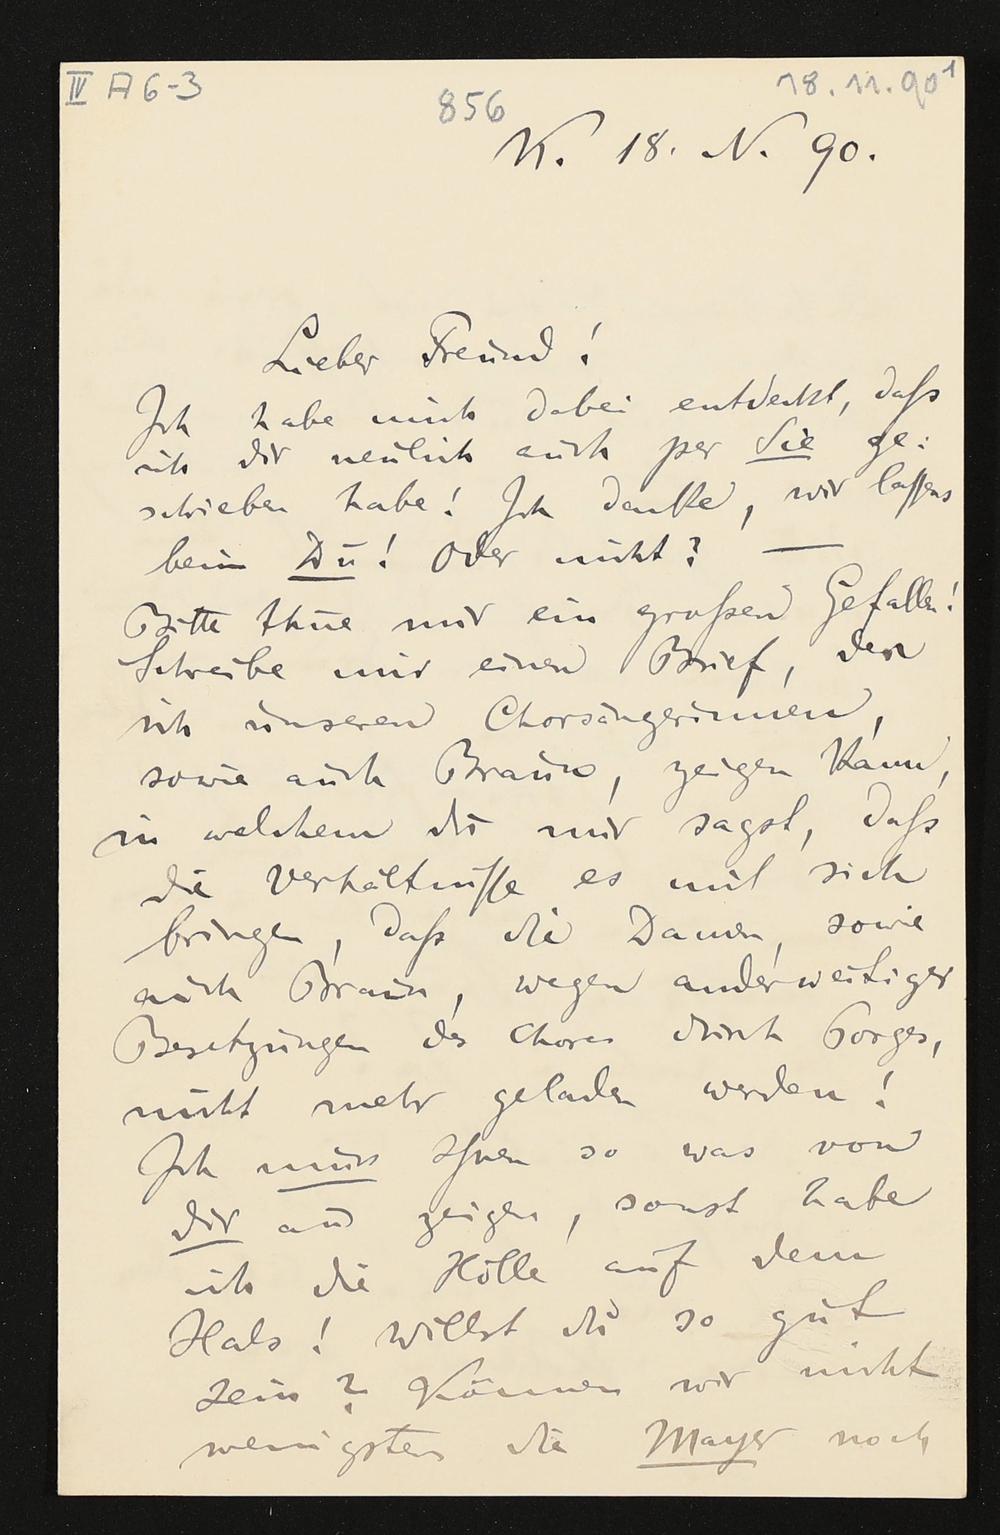 IV A 6-3
856
18.11.90¹
K. 18. N. 90.
Lieber Freund!
Ich habe mich dabei entdeckt, daß
ich dir neulich auch per Sie ge:
schrieben habe! Ich denke, wir lassens
beim Du! Oder nicht? —
Bitte thue mir ein großen Gefallen!
Schreibe mir einen Brief, den
ich unseren Chorsängerinnen,
sowie auch Braun, zeigen kann,
in welchem du mir sagst, daß
die Verhältnisse es mit sich
bringen, daß die Damen, sowie
auch Braun, wegen anderweitiger
Besetzungen des Chores durch Porges,
nicht mehr geladen werden!
Ich muss Ihnen so was von
dir aus zeigen, sonst habe
ich die Hölle auf dem
Hals! Willst du so gut
sein? Können wir nicht
wenigsten die Mayer noch